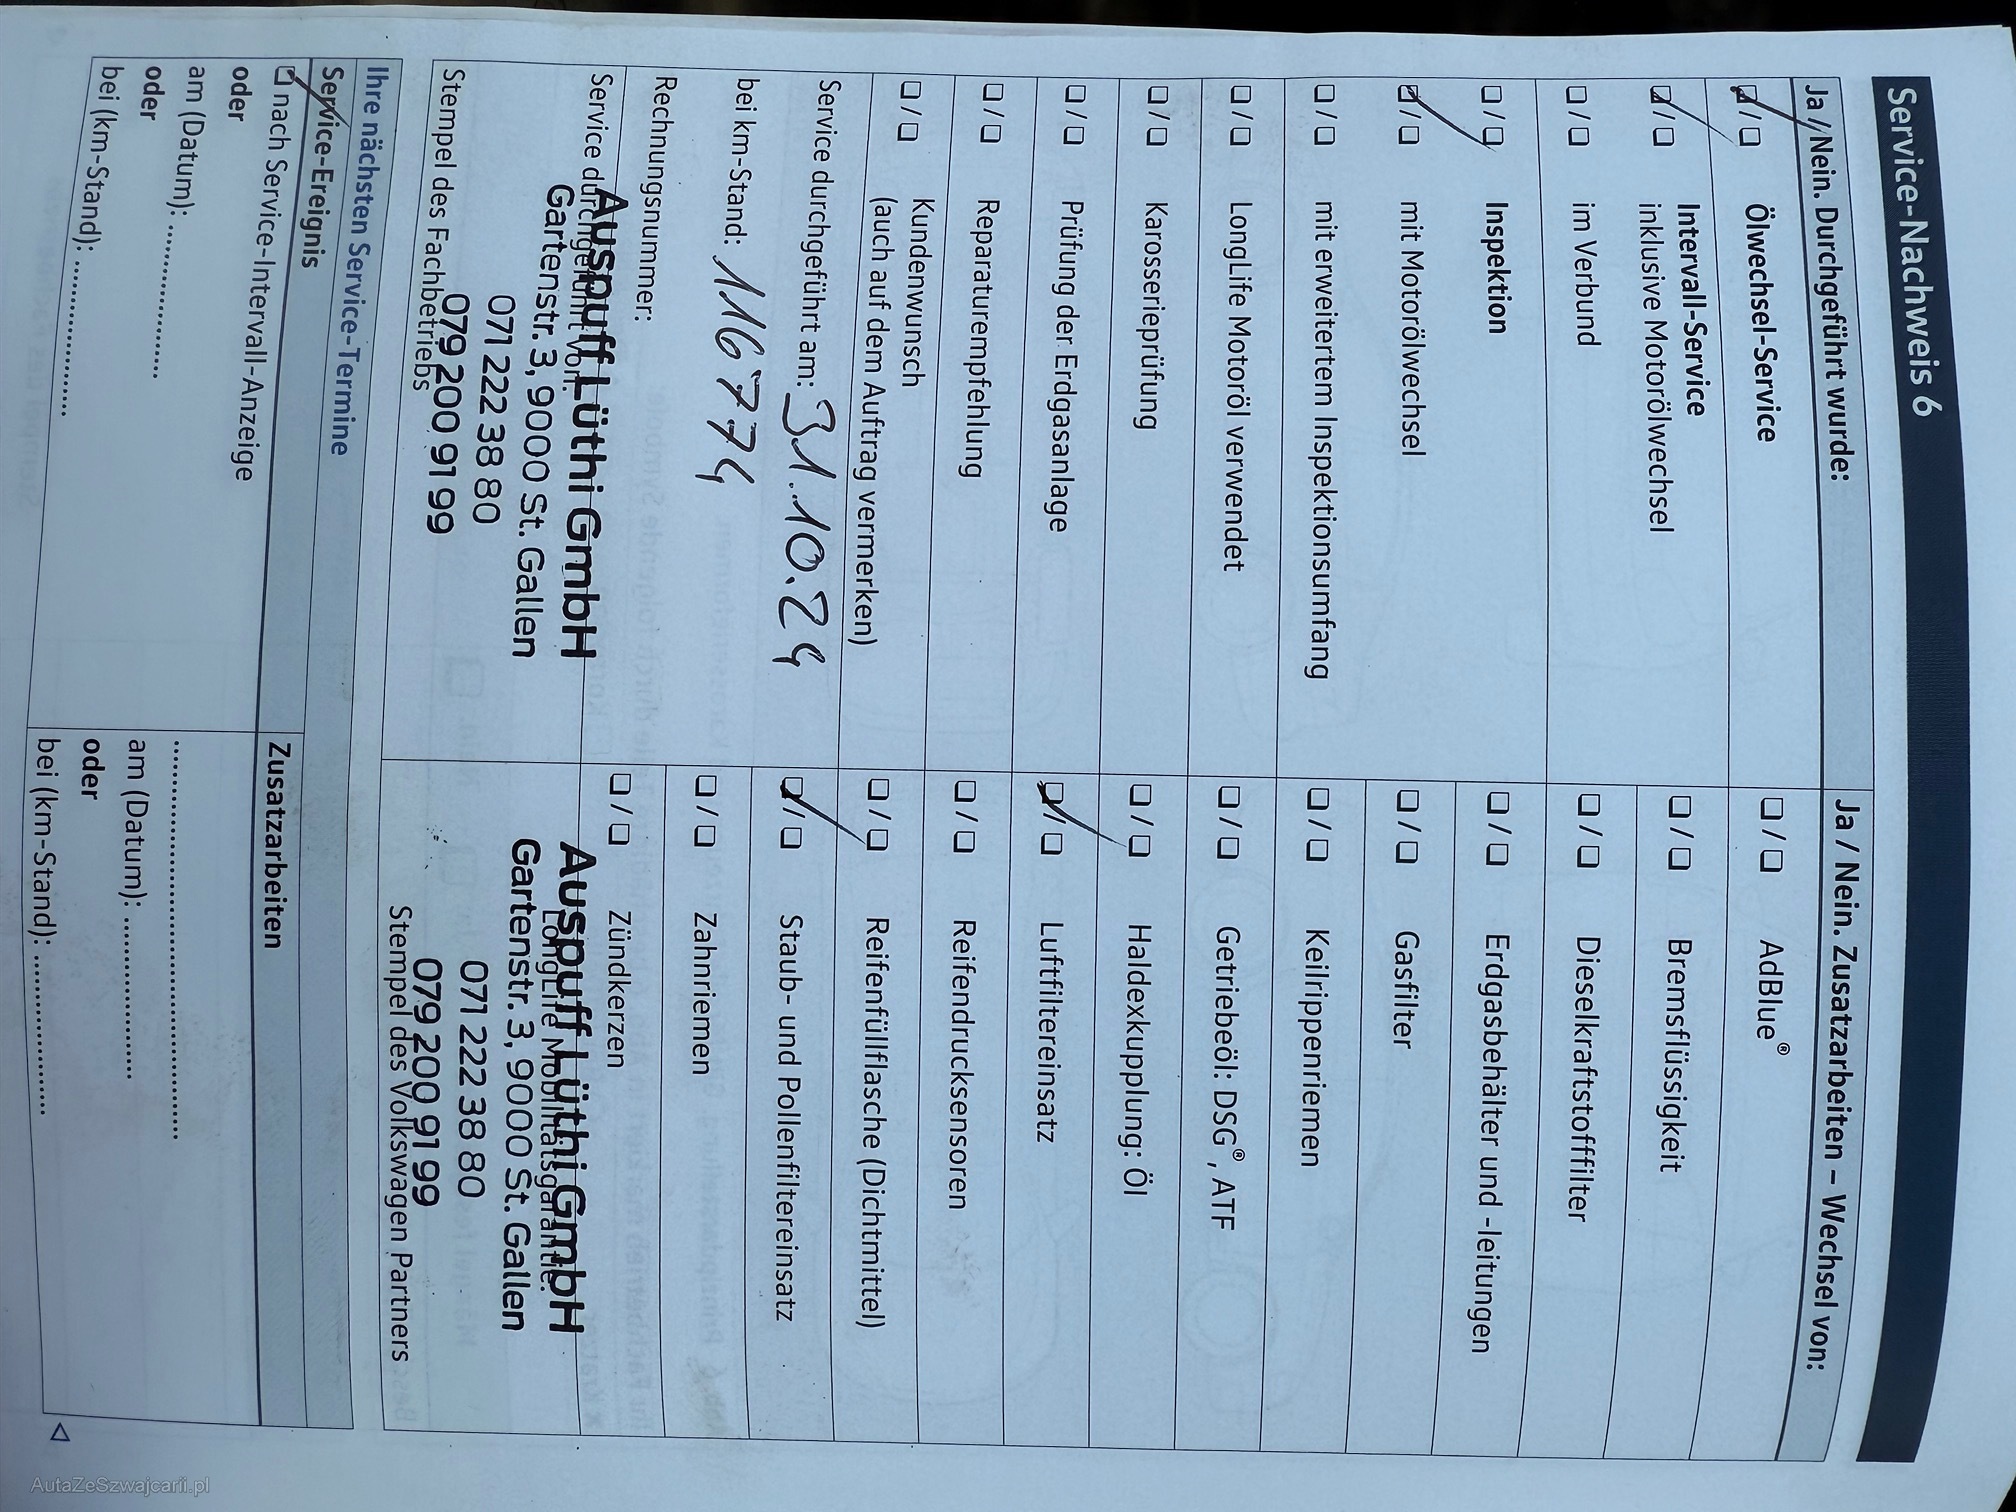 Service-Nachweis 6
Ja / Nein. Durchgeführt wurde:
☑ / ☐ Ölwechsel-Service
☑ / ☐ Intervall-Service
inklusive Motorölwechsel
☐ / ☐ im Verbund
☐ / ☐ Inspektion
☑ / ☐ mit Motorölwechsel
☐ / ☐ mit erweitertem Inspektionsumfang
☐ / ☐ LongLife Motoröl verwendet
☐ / ☐ Karosserieprüfung
☐ / ☐ Prüfung der Erdgasanlage
☐ / ☐ Reparaturempfehlung
☐ / ☐ Kundenwunsch
(auch auf dem Auftrag vermerken)
Service durchgeführt am: 31.10.24
bei km-Stand: 116774
Rechnungsnummer:
Service durchgeführt von:
Auspuff Lüthi GmbH
Gartenstr. 3, 9000 St. Gallen
071 222 38 80
079 200 91 99
Stempel des Fachbetriebs
Ja / Nein. Zusatzarbeiten – Wechsel von:
☐ / ☐ AdBlue®
☐ / ☐ Bremsflüssigkeit
☐ / ☐ Dieselkraftstofffilter
☐ / ☐ Erdgasbehälter und -leitungen
☐ / ☐ Gasfilter
☐ / ☐ Keilrippenriemen
☐ / ☐ Getriebeöl: DSG®, ATF
☐ / ☐ Haldexkupplung: Öl
☑ / ☐ Luftfiltereinsatz
☐ / ☐ Reifendrucksensoren
☐ / ☐ Reifenfüllflasche (Dichtmittel)
☑ / ☐ Staub- und Pollenfiltereinsatz
☐ / ☐ Zahnriemen
☐ / ☐ Zündkerzen
LongLife Mobilitätsgarantie:
Auspuff Lüthi GmbH
Gartenstr. 3, 9000 St. Gallen
071 222 38 80
079 200 91 99
Stempel des Volkswagen Partners
Ihre nächsten Service-Termine
Service-Ereignis
☑ nach Service-Intervall-Anzeige
oder
am (Datum): ....................
oder
bei (km-Stand): ....................
Zusatzarbeiten
..................................................
am (Datum): ....................
oder
bei (km-Stand): ....................
AutaZeSzwajcarii.pl